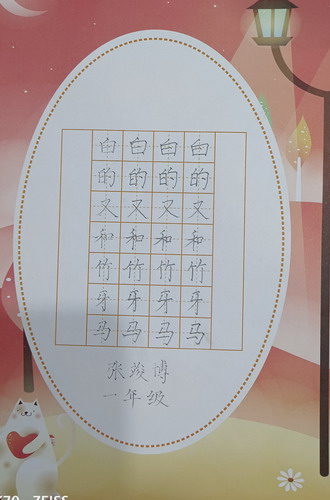 白白白白
的的的的
又又又又
和和和和
竹竹竹竹
牙牙牙牙
马马马马
张竣博
一年级
ZEISS